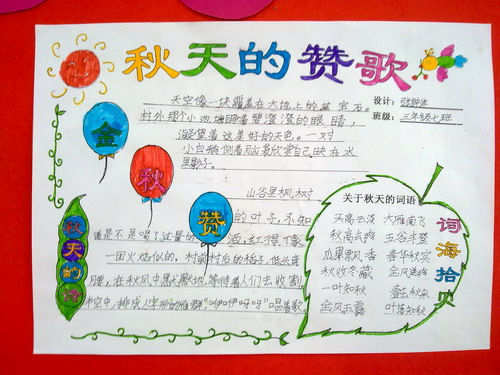 秋天的赞歌
设计:
班级: 三年级七班
天空像一块覆盖在大地上的蓝宝石。
村外那个小池塘睁着碧澄澄的眼睛,
凝望着这美好的天色。一对
小白鹅侧着脑袋欣赏自己映在水
里影子。
山谷里枫树
的叶子,不知
道是不是喝了过量的酒,红得像
一团火焰似的。村前村后的稻子,低头弯
腰,在秋风中默默地等待着人们去收割。
半空中,排成人字形的雁群"咿咿呀呀"唱着歌。
金
秋
赞
秋天的诗
关于秋天的词语
天高云淡 大雁南飞
秋高气爽 五谷丰登
瓜果飘香 春华秋实
秋收冬藏 金风送爽
一叶知秋
金风玉露 叶落知秋
词海拾贝